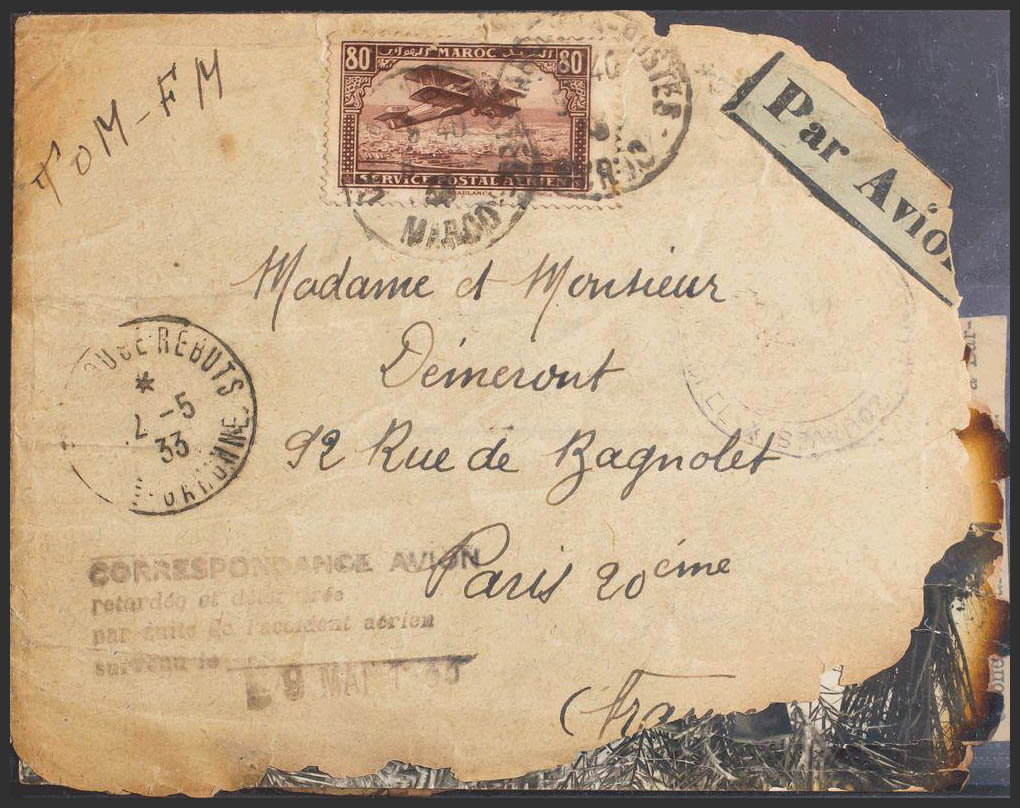 TOM-FM
80 MAROC 80
SERVICE POSTAL AÉRIEN
CASABLANCA
MAROC
POSTES
40
Par Avion
Madame et Monsieur
Démeront
92 Rue de Bagnolet
Paris 20ème
(Fran
REBUTS
*
2-5
33
GARONNE
ZOUAVES
CORRESPONDANCE AVION
retardée et
par suite de l'accident aérien
survenu le
9 MAI